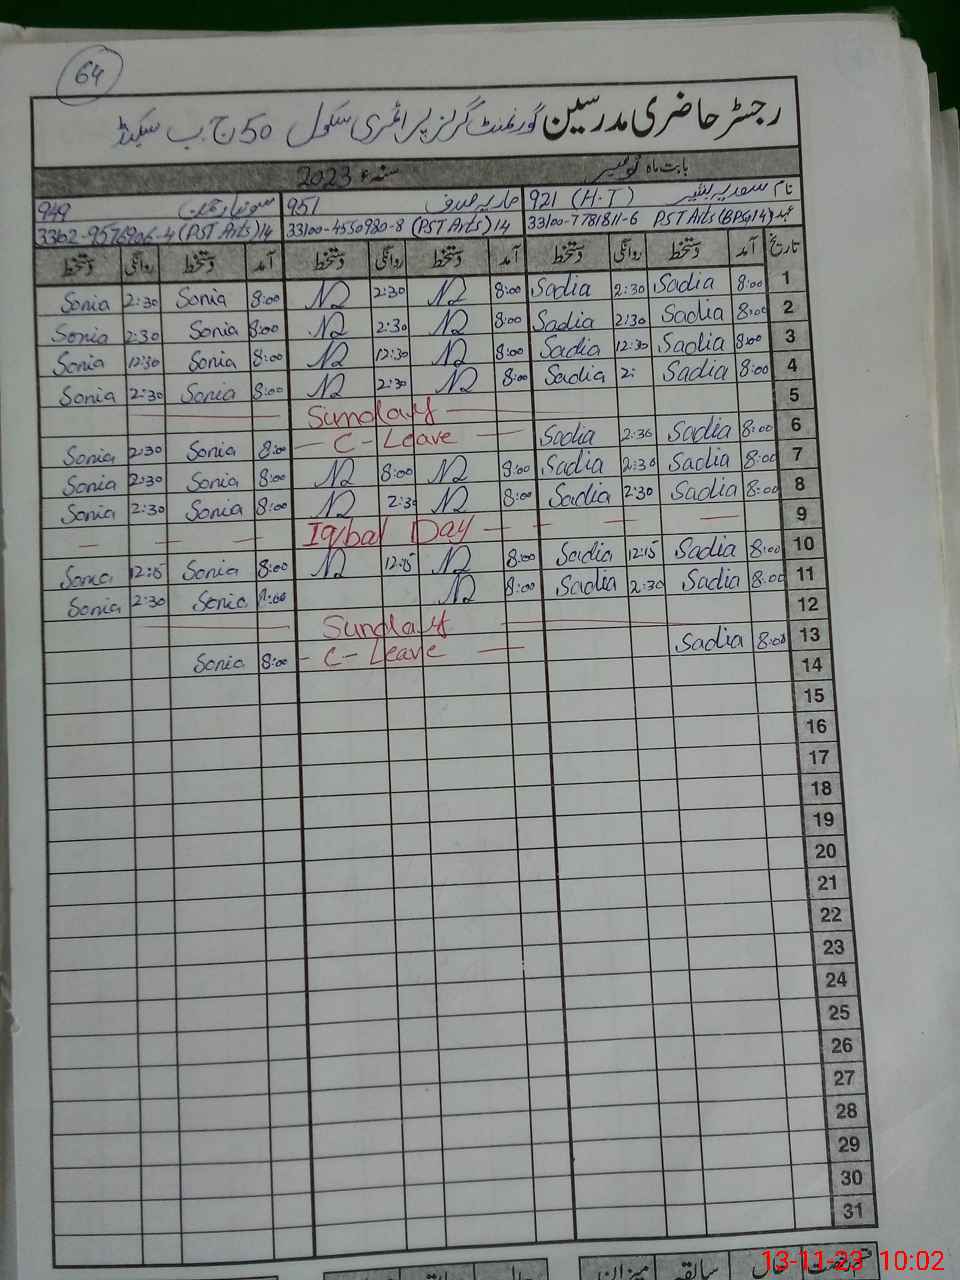 64
رجسٹر حاضری مدرسین گورنمنٹ گرلز پرائمری سکول 50 ج ب سیکنڈ
بابت ماہ نومبر سنہء 2023
نام سعدیہ بشیر 921 (H.T) 951 949
عہدہ PST Arts (BPS14) 33100-7781811-6 33100-4550980-8 (PST Arts) 14 (PST Arts) 14
تاریخ آمد دستخط روانگی دستخط آمد دستخط روانگی دستخط آمد دستخط روانگی دستخط
Sonia 2:30 Sonia 8:00 N2 2:30 N2 8:00 Sadia 2:30 Sadia 8:00 1
Sonia 2:30 Sonia 8:00 N2 2:30 N2 8:00 Sadia 2:30 Sadia 8:00 2
Sonia 12:30 Sonia 8:00 N2 12:30 N2 8:00 Sadia 12:30 Sadia 8:00 3
Sonia 2:30 Sonia 8:00 N2 2:30 N2 8:00 Sadia 2: Sadia 8:00 4
Sunday 5
Sonia 2:30 Sonia 8:00 C-Leave Sadia 2:30 Sadia 8:00 6
Sonia 2:30 Sonia 8:00 N2 8:00 N2 8:00 Sadia 2:30 Sadia 8:00 7
Sonia 2:30 Sonia 8:00 N2 2:30 N2 8:00 Sadia 2:30 Sadia 8:00 8
Iqbal Day 9
Sonia 12:15 Sonia 8:00 N2 12:15 N2 8:00 Sadia 12:15 Sadia 8:00 10
Sonia 2:30 Sonia 8:00 N2 8:00 Sadia 2:30 Sadia 8:00 11
Sunday 12
Sonia 8:00 C-Leave Sadia 8:00 13
14
15
16
17
18
19
20
21
22
23
24
25
26
27
28
29
30
31
سابقہ میزان
13-11-23 10:02